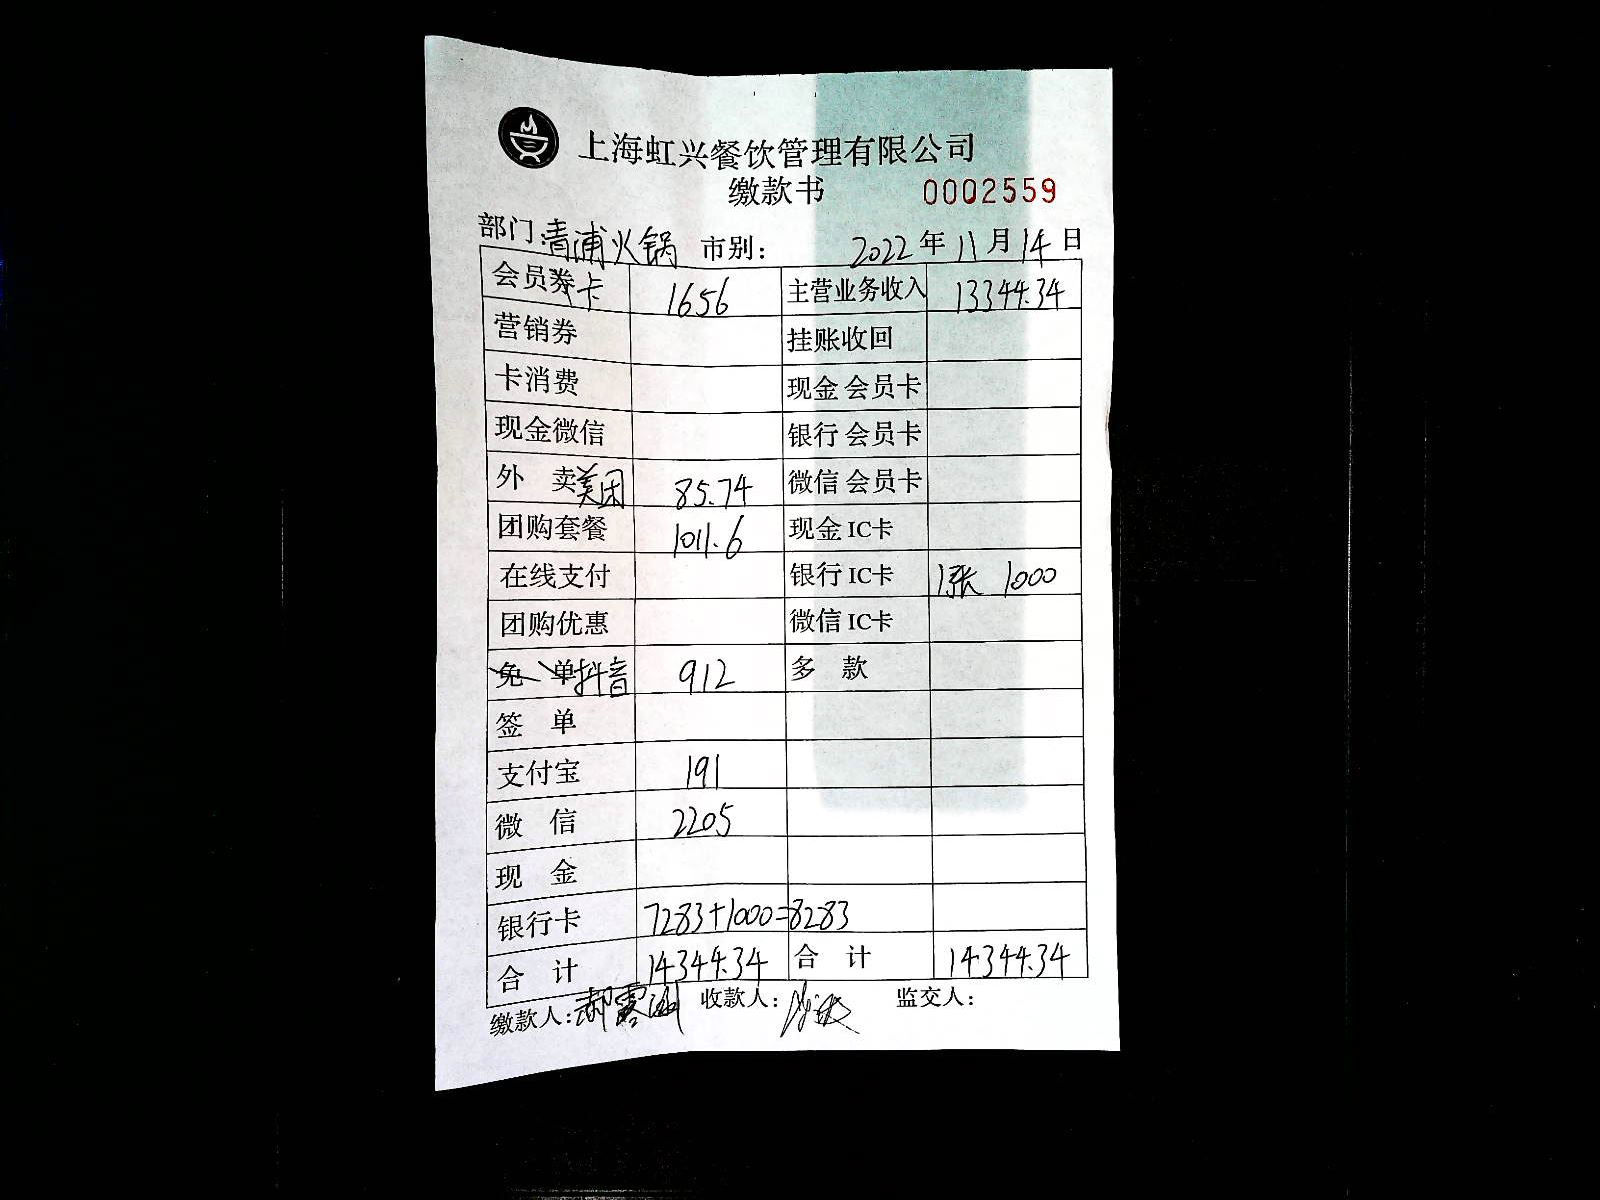 上海虹兴餐饮管理有限公司
缴款书 0002559
部门:青浦火锅 市别: 2022年11月14日
会员券卡 1656 主营业务收入 13344.34
营销券 挂账收回
卡消费 现金会员卡
现金微信 银行会员卡
外 卖美团 85.74 微信会员卡
团购套餐 1011.6 现金IC卡
在线支付 银行IC卡 1张 1000
团购优惠 微信IC卡
免 单抖音 912 多 款
签 单
支付宝 191
微 信 2205
现 金
银行卡 7283+1000=8283
合 计 14344.34 合 计 14344.34
缴款人:郝露 收款人: 监交人: